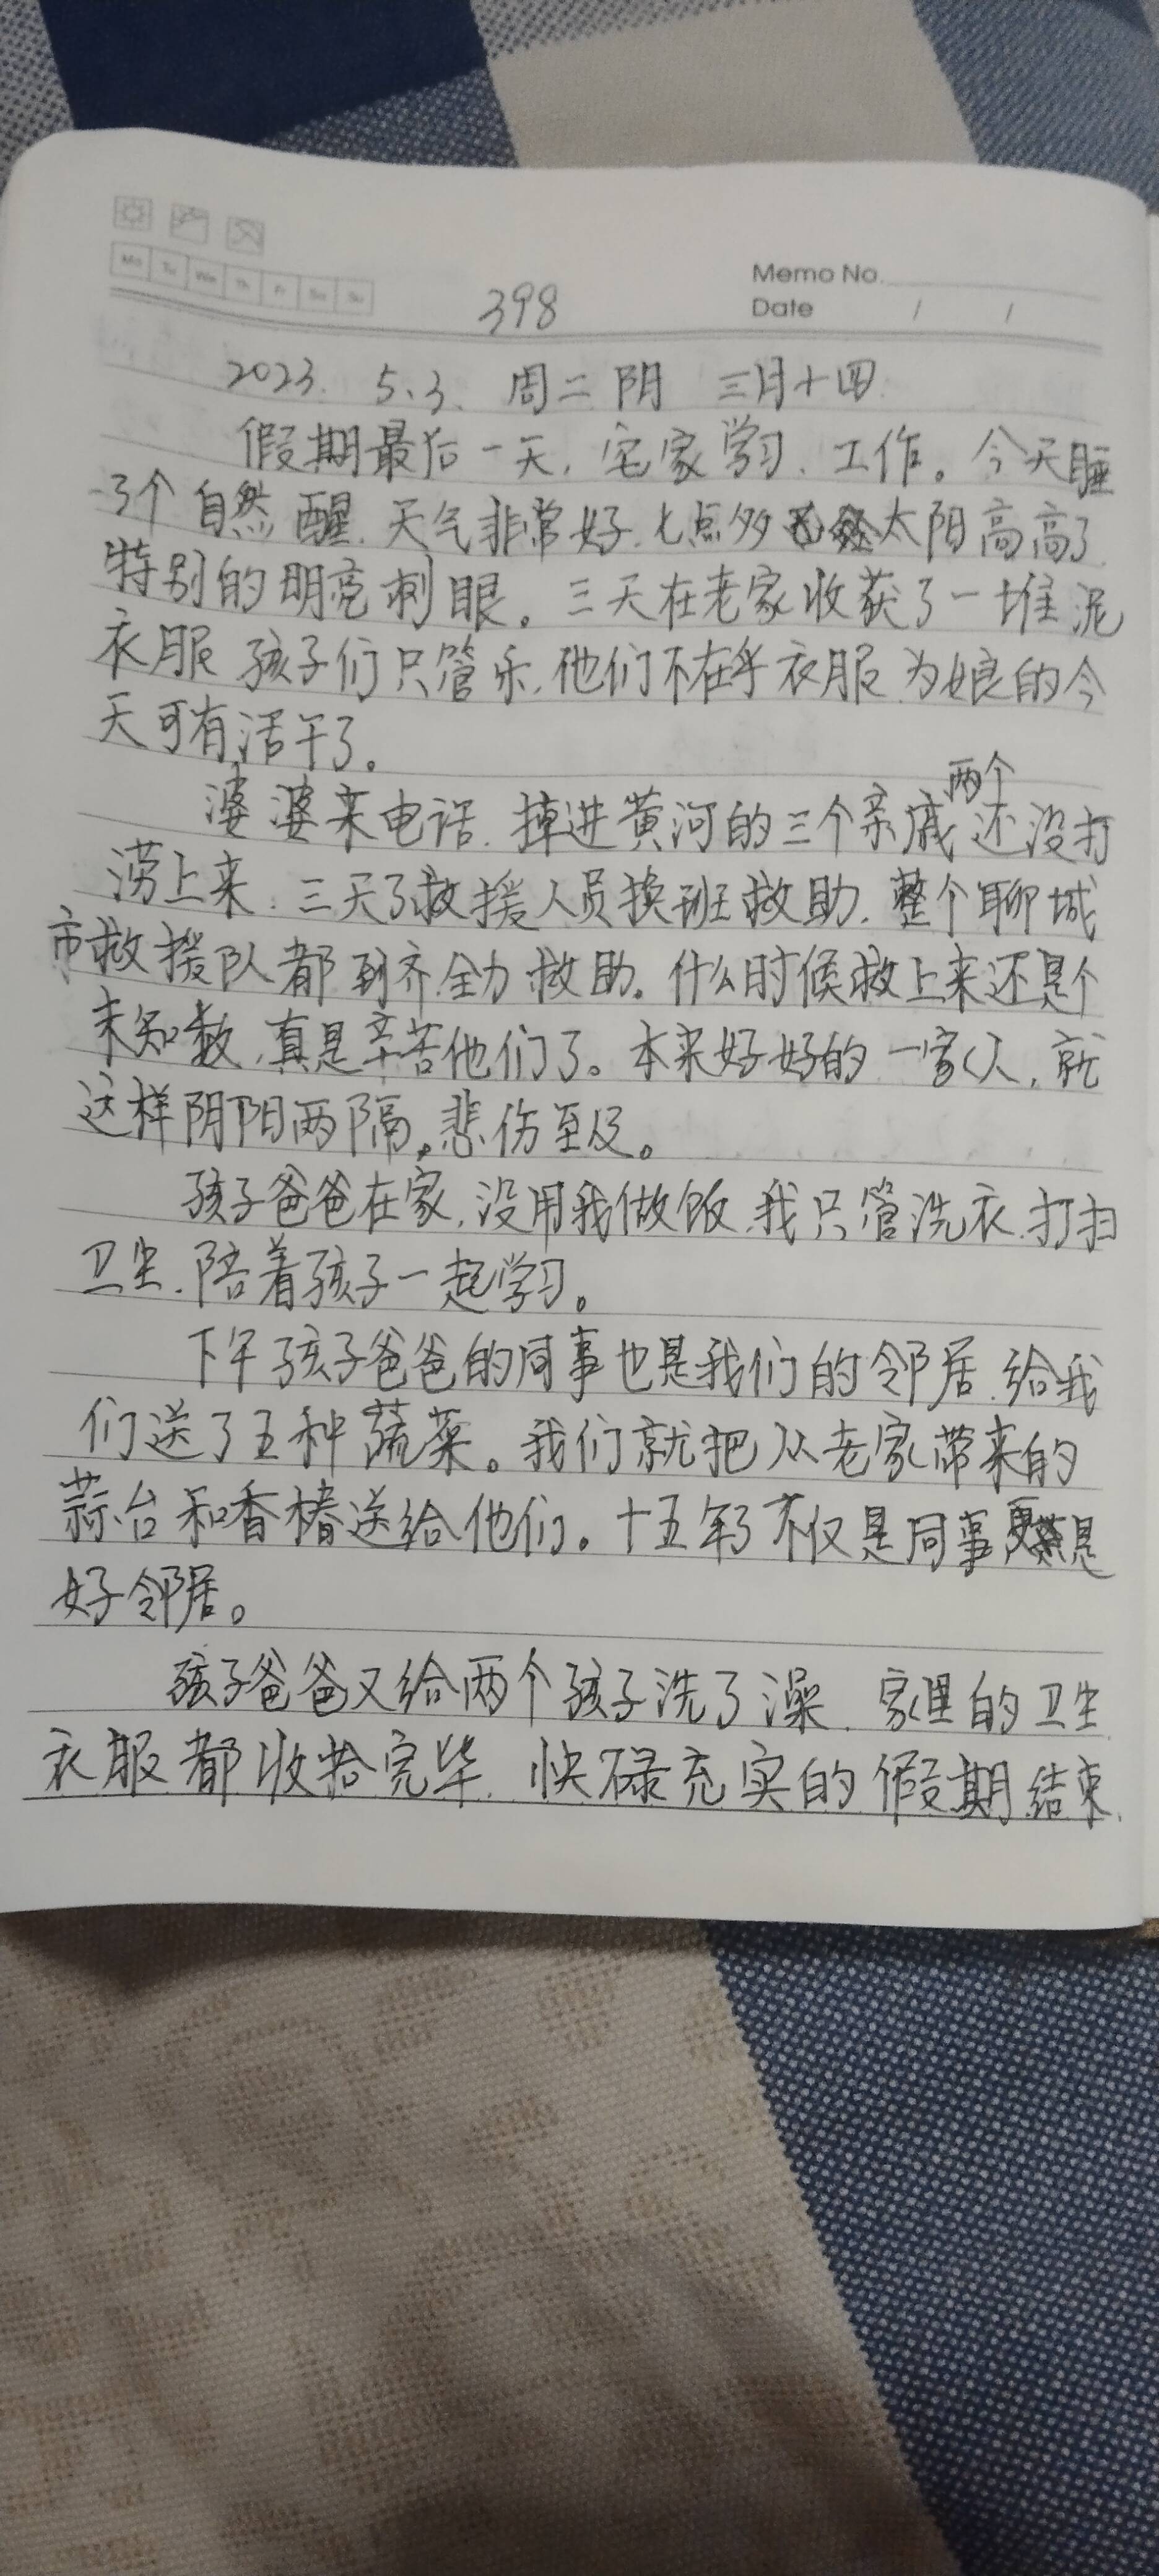 Mo Tu We Th Fr Sa Su
Memo No.
Date / /
398
2023. 5.3. 周二 阴 三月十四
假期最后一天,宅家学习、工作。今天睡
了个自然醒.天气非常好.七点多太阳高高了.
特别的明亮刺眼。三天在老家收获了一堆泥
衣服 孩子们只管乐.他们不在乎衣服 为娘的今
天可有活干了。
婆婆来电话.掉进黄河的三个亲戚两个还没打
涝上来.三天了救援人员换班救助.整个聊城
市救援队都到齐全力救助。什么时候救上来还是个
未知数,真是辛苦他们了。本来好好的一家人,就
这样阴阳两隔。悲伤至及。
孩子爸爸在家,没用我做饭.我只管洗衣.打扫
卫生.陪着孩子一起学习。
下午孩子爸爸的同事也是我们的邻居.给我
们送了五种蔬菜。我们就把从老家带来的
蒜台和香椿送给他们。十五年了不仅是同事更是
好邻居。
孩子爸爸又给两个孩子洗了澡.家里的卫生
衣服都收拾完毕.快碌充实的假期结束.